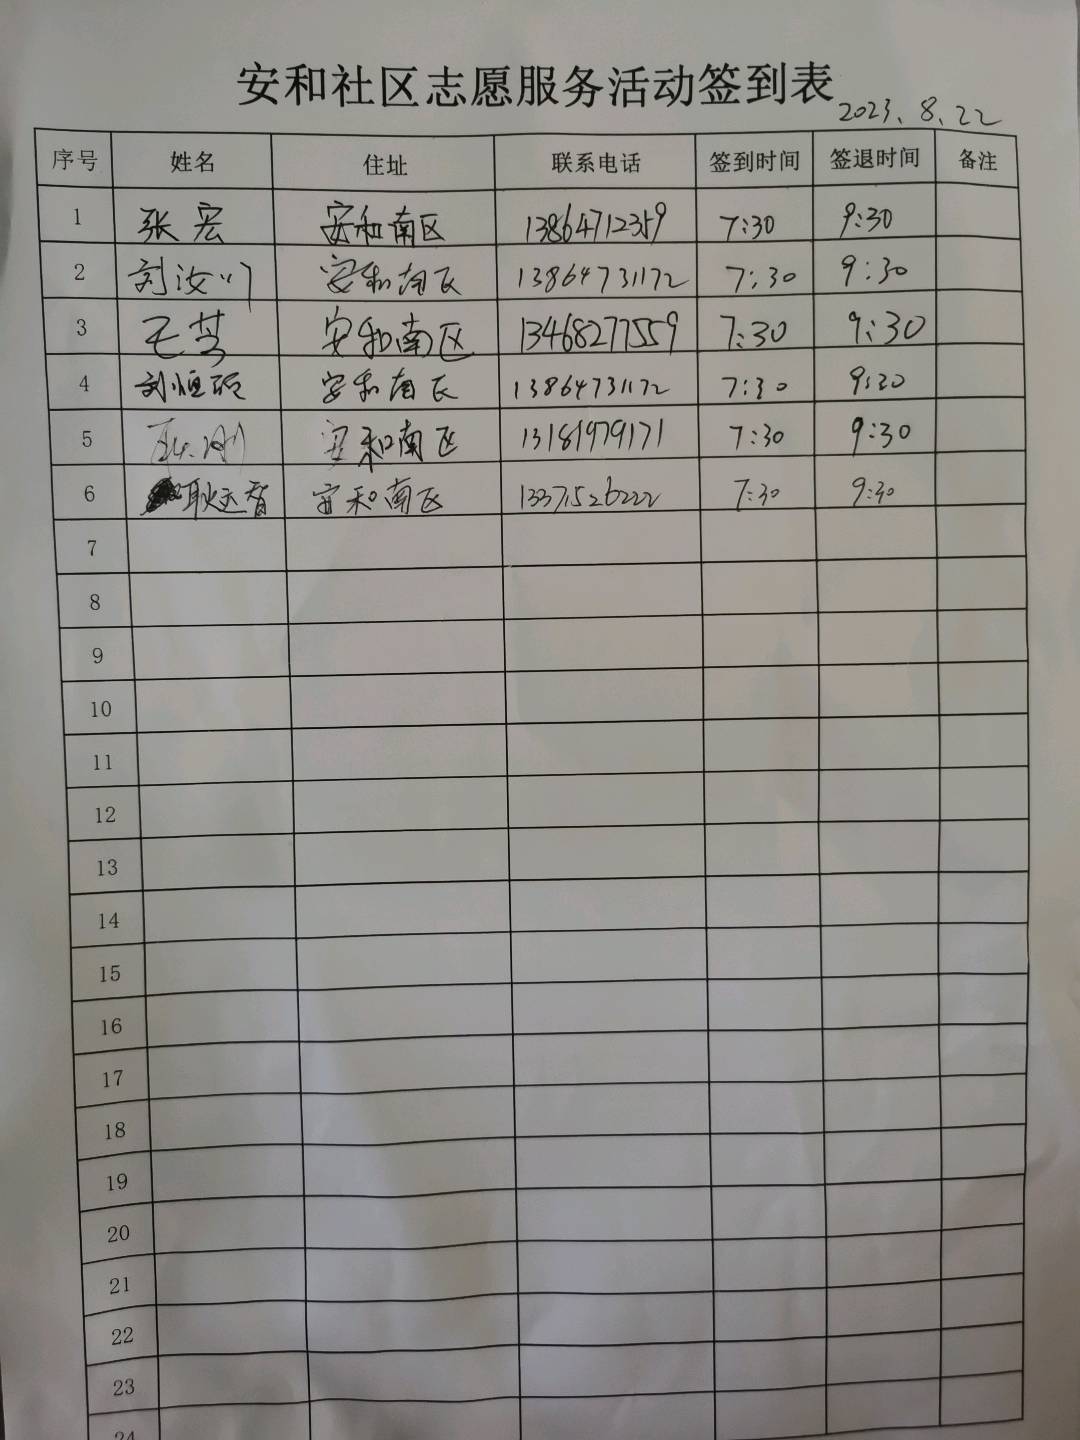 安和社区志愿服务活动签到表
2023.8.22
序号 姓名 住址 联系电话 签到时间 签退时间 备注
1 张宏 安和南区 13864712359 7:30 9:30
2 刘汝川 安和南区 13864731172 7:30 9:30
3 王芸 安和南区 13468277559 7:30 9:30
4 刘恒 安和南区 13864731172 7:30 9:30
5 安和南区 13181979171 7:30 9:30
6 耿运智 安和南区 13371526222 7:30 9:30
7
8
9
10
11
12
13
14
15
16
17
18
19
20
21
22
23
24